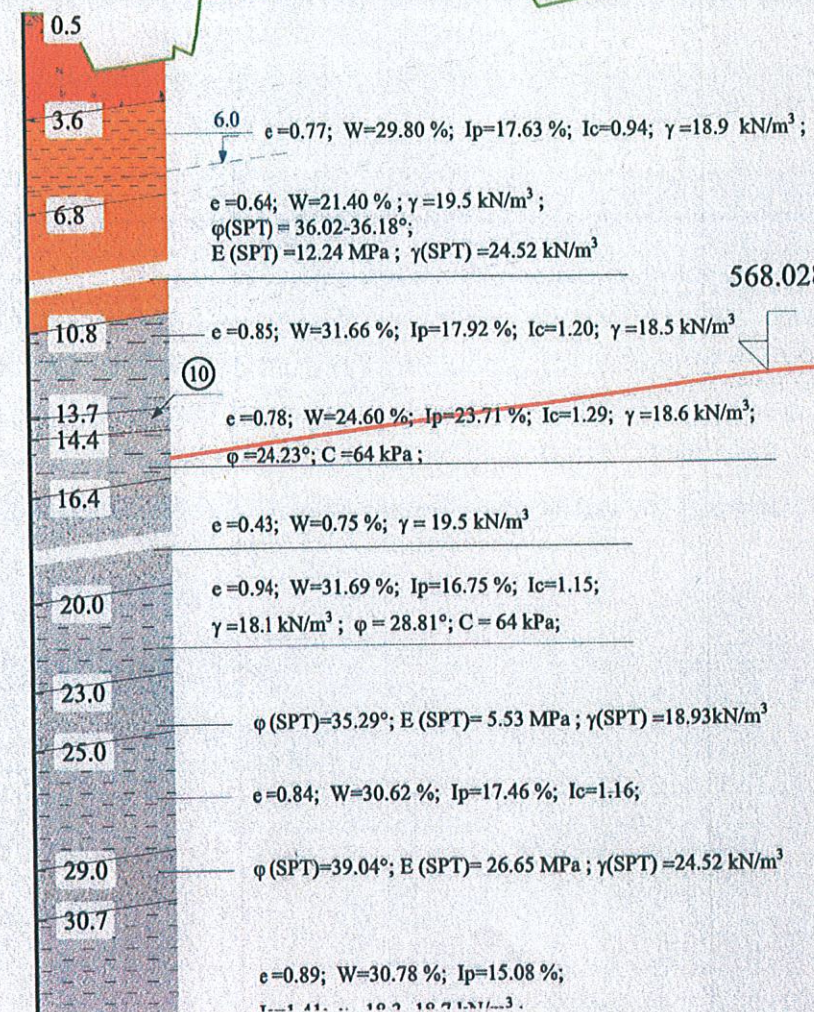 0.5
3.6
6.0
e =0.77; W=29.80 %; Ip=17.63 %; Ic=0.94; γ =18.9 kN/m³ ;
6.8
e =0.64; W=21.40 % ; γ =19.5 kN/m³ ;
φ(SPT) = 36.02-36.18°;
E (SPT) =12.24 MPa ; γ(SPT) =24.52 kN/m³
568.028
10.8
e =0.85; W=31.66 %; Ip=17.92 %; Ic=1.20; γ =18.5 kN/m³
10
13.7
e =0.78; W=24.60 %; Ip=23.71 %; Ic=1.29; γ =18.6 kN/m³;
14.4
φ =24.23°; C =64 kPa ;
16.4
e =0.43; W=0.75 %; γ = 19.5 kN/m³
e =0.94; W=31.69 %; Ip=16.75 %; Ic=1.15;
20.0
γ =18.1 kN/m³ ; φ = 28.81°; C = 64 kPa;
23.0
φ (SPT)=35.29°; E (SPT)= 5.53 MPa ; γ(SPT) =18.93kN/m³
25.0
e =0.84; W=30.62 %; Ip=17.46 %; Ic=1.16;
29.0
φ (SPT)=39.04°; E (SPT)= 26.65 MPa ; γ(SPT) =24.52 kN/m³
30.7
e =0.89; W=30.78 %; Ip=15.08 %;